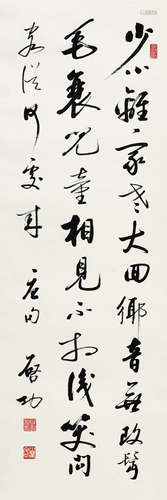 少小離家老大回鄉音無改鬢
毛衰兒童相見不相識笑問
客從何處來 唐句 啟功